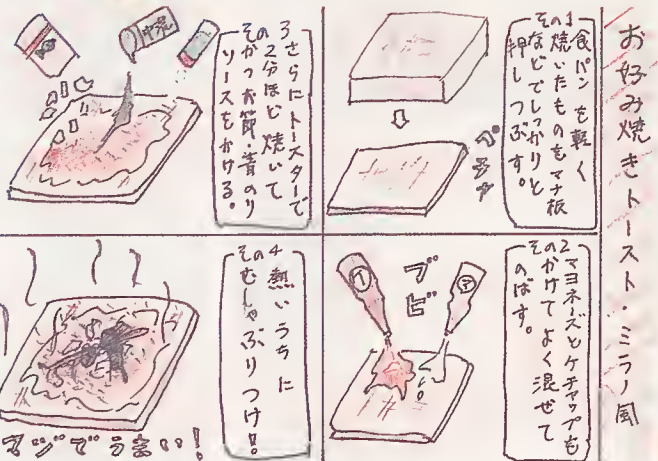 お好み焼きトースト・ミラノ風
その1
食パンを軽く
焼いたものをマナ板
などでしっかりと
押しつぶす。
ペチャ
その2
マヨネーズとケチャップを
かけてよく混ぜて
のばす。
ブビ
その3
さらにトースターで
2分ほど焼いて
かつお節・青のり
ソースをかける。
中濃
その4
熱いうちに
むしゃぶりつけ!!
マジでうまい!